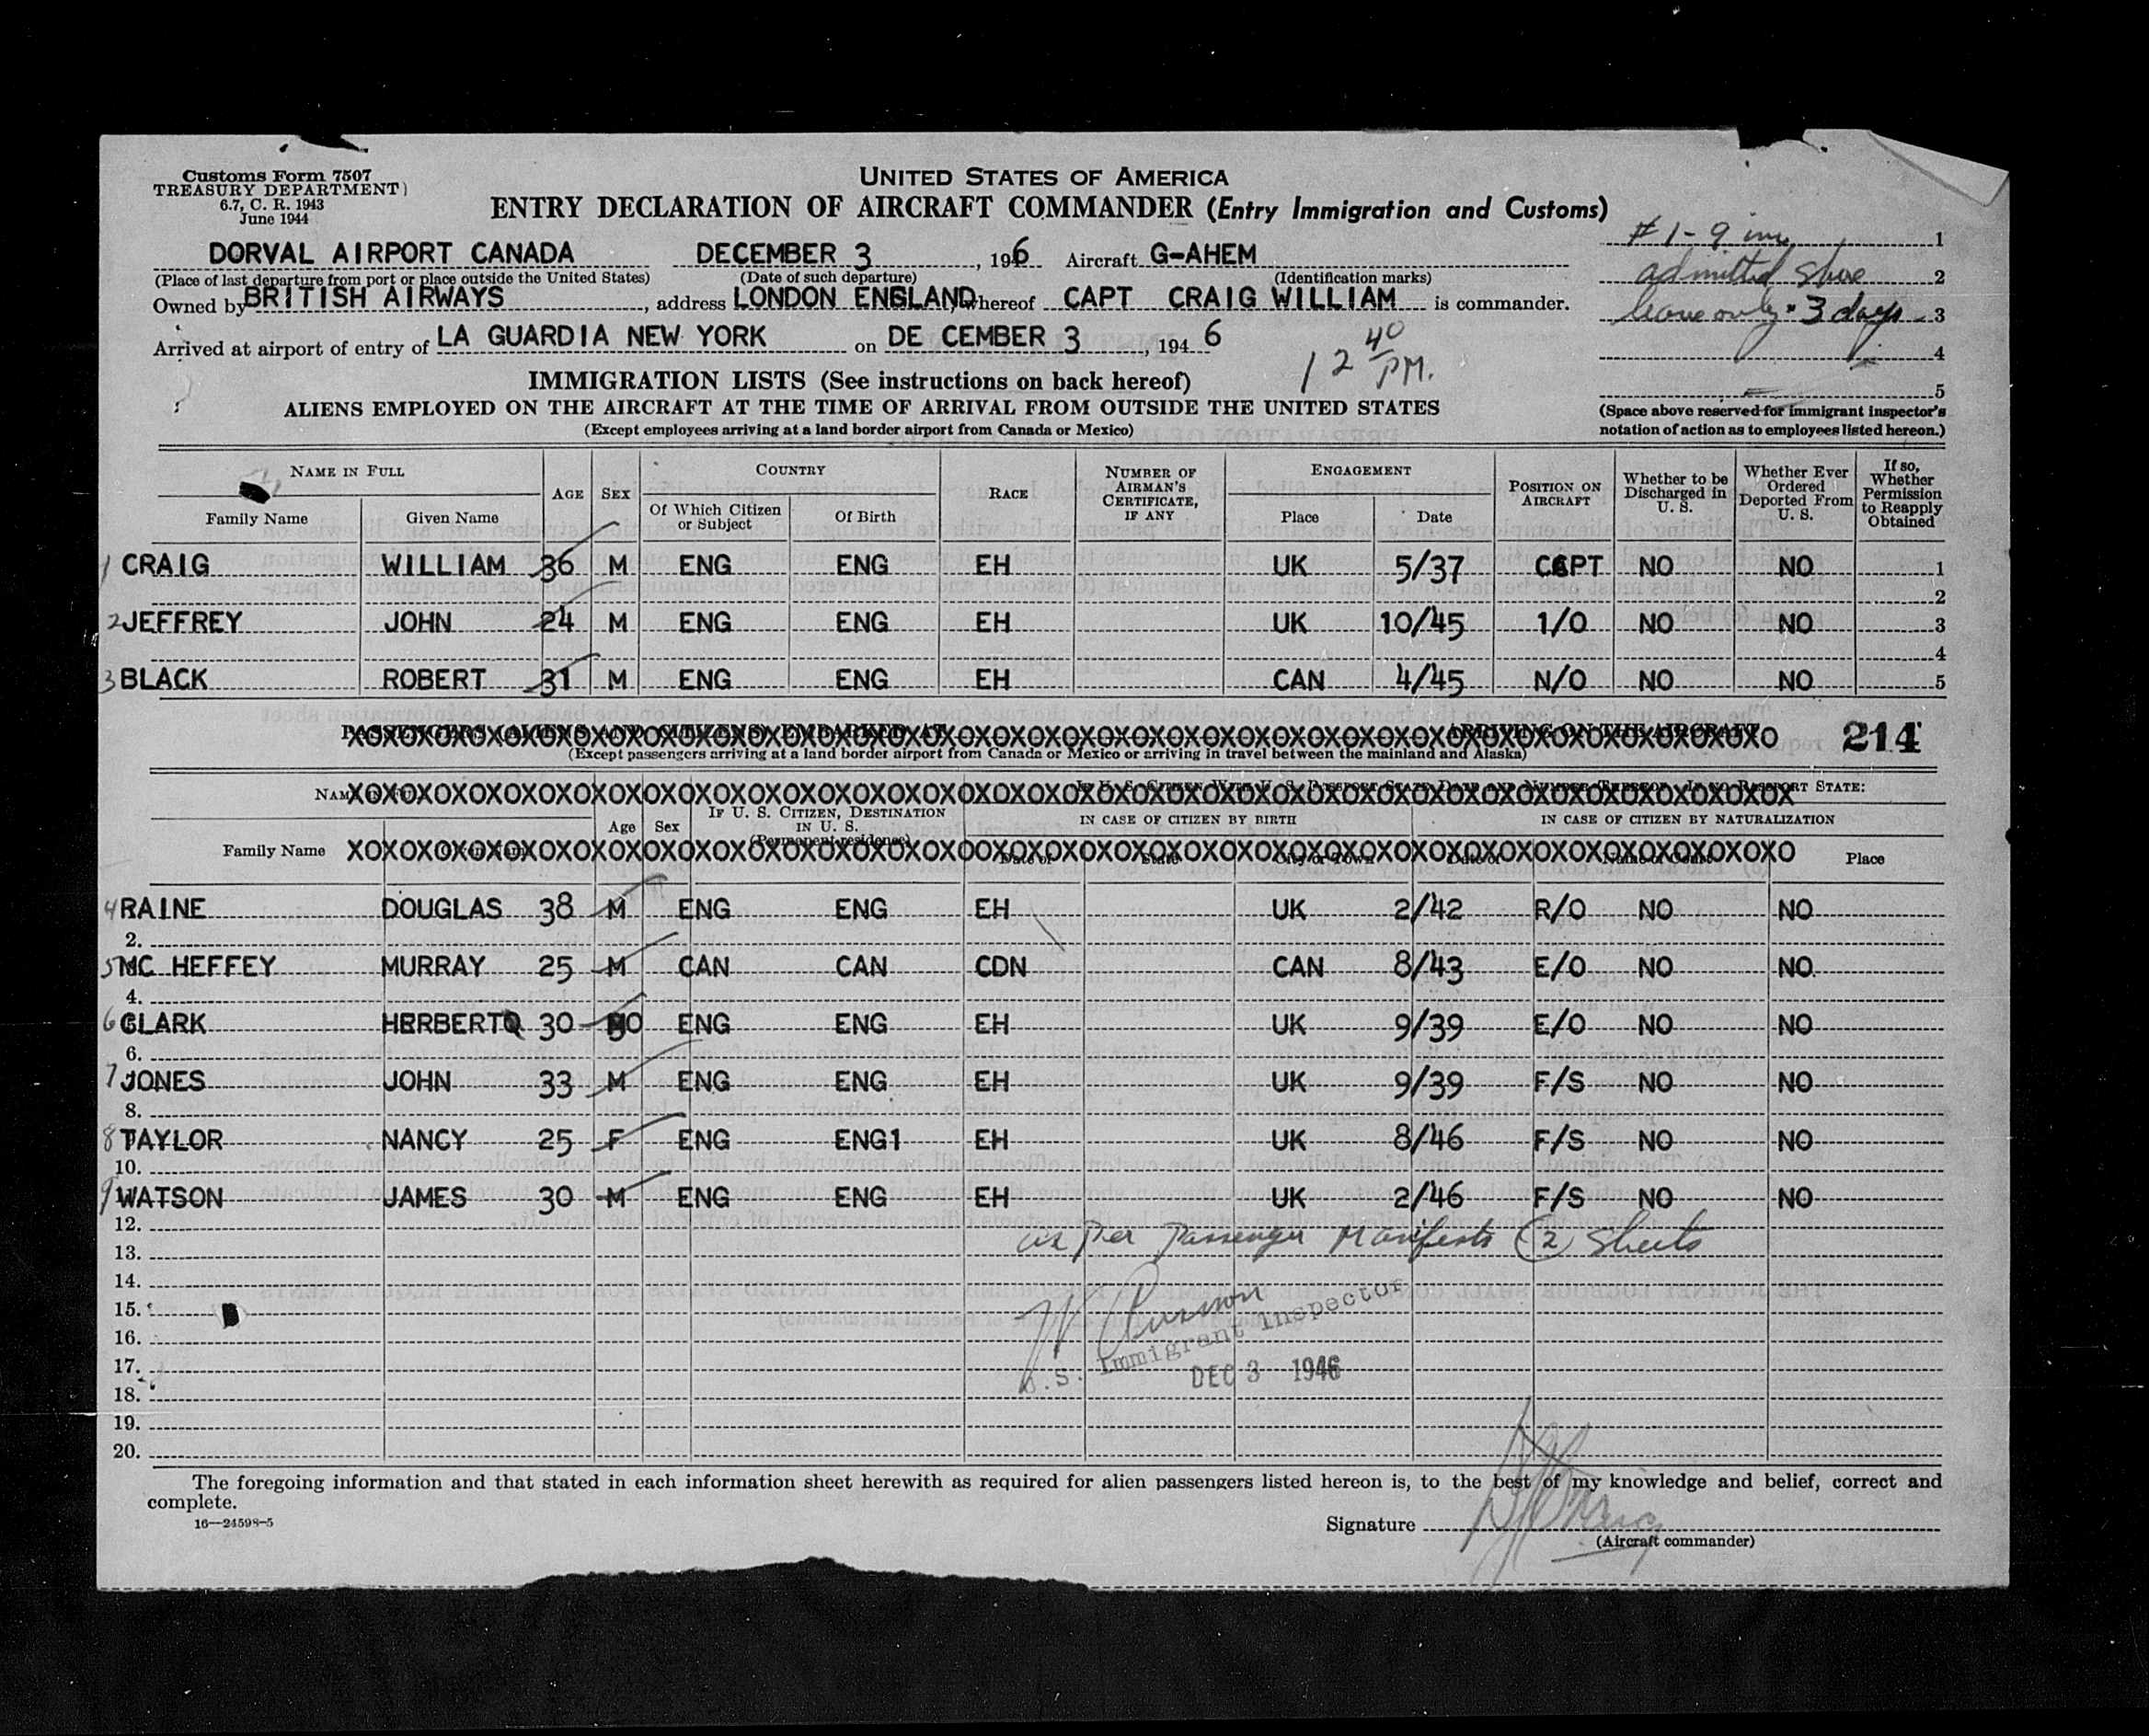 Customs Form 7507
TREASURY DEPARTMENT)
6.7, C. R. 1943
June 1944
UNITED STATES OF AMERICA
ENTRY DECLARATION OF AIRCRAFT COMMANDER (Entry Immigration and Customs)
# 1-9 inc 1
admitted shore 2
leave only 3 days 3
4
5
(Space above reserved for immigrant inspector's
notation of action as to employees listed hereon.)
DORVAL AIRPORT CANADA DECEMBER 3, 1946 Aircraft G-AHEM
(Place of last departure from port or place outside the United States) (Date of such departure) (Identification marks)
Owned by BRITISH AIRWAYS, address LONDON ENGLAND, whereof CAPT CRAIG WILLIAM is commander.
Arrived at airport of entry of LA GUARDIA NEW YORK on DE CEMBER 3, 194 6
12 40 PM.
IMMIGRATION LISTS (See instructions on back hereof)
ALIENS EMPLOYED ON THE AIRCRAFT AT THE TIME OF ARRIVAL FROM OUTSIDE THE UNITED STATES
(Except employees arriving at a land border airport from Canada or Mexico)
NAME IN FULL AGE SEX COUNTRY RACE NUMBER OF AIRMAN'S CERTIFICATE, IF ANY ENGAGEMENT POSITION ON AIRCRAFT Whether to be Discharged in U. S. Whether Ever Ordered Deported From U. S. If so, Whether Permission to Reapply Obtained
Family Name Given Name Of Which Citizen or Subject Of Birth Place Date
1 CRAIG WILLIAM 36 M ENG ENG EH UK 5/37 CAPT NO NO 1
2
2 JEFFREY JOHN 24 M ENG ENG EH UK 10/45 1/O NO NO 3
4
3 BLACK ROBERT 31 M ENG ENG EH CAN 4/45 N/O NO NO 5
PASSENGERS (ALIENS AND CITIZENS) EMBARKED AT ARRIVING ON THE AIRCRAFT 214
(Except passengers arriving at a land border airport from Canada or Mexico or arriving in travel between the mainland and Alaska)
NAME IN FULL IF U. S. CITIZEN WITH U. S. PASSPORT STATE DATE AND NUMBER THEREOF. IF NO PASSPORT STATE:
Age Sex IF U. S. CITIZEN, DESTINATION IN U. S. (Permanent residence) IN CASE OF CITIZEN BY BIRTH IN CASE OF CITIZEN BY NATURALIZATION
Family Name Given Name Date of State City or Town Date of Name of Court Place
4 RAINE DOUGLAS 38 M ENG ENG EH UK 2/42 R/O NO NO
2.
5 MC HEFFEY MURRAY 25 M CAN CAN CDN CAN 8/43 E/O NO NO
4.
6 CLARK HERBERT 30 ENG ENG EH UK 9/39 E/O NO NO
6.
7 JONES JOHN 33 M ENG ENG EH UK 9/39 F/S NO NO
8.
8 TAYLOR NANCY 25 F ENG ENG1 EH UK 8/46 F/S NO NO
10.
9 WATSON JAMES 30 M ENG ENG EH UK 2/46 F/S NO NO
12.
as Per Passenger Manifests (2) Sheets
13.
14.
15.
16.
U.S. Immigrant Inspector
17.
DEC 3 1946
18.
19.
20.
The foregoing information and that stated in each information sheet herewith as required for alien passengers listed hereon is, to the best of my knowledge and belief, correct and
complete.
16—24598-5
Signature
(Aircraft commander)